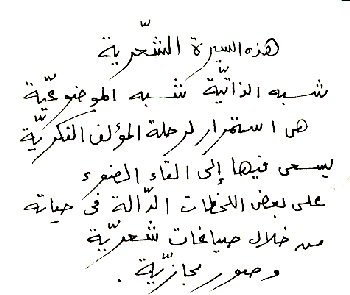 هذه السيرة الشّعرية
شبه الذاتيّة شبه الموضوعيّة
هى استمرار لرحلة المؤلف الفكريّة
يسعى فيها إلى القاء الضوء
على بعض اللحظات الدّالة فى حياته
من خلال صياغات شعريّة
وصور مجازيّة .